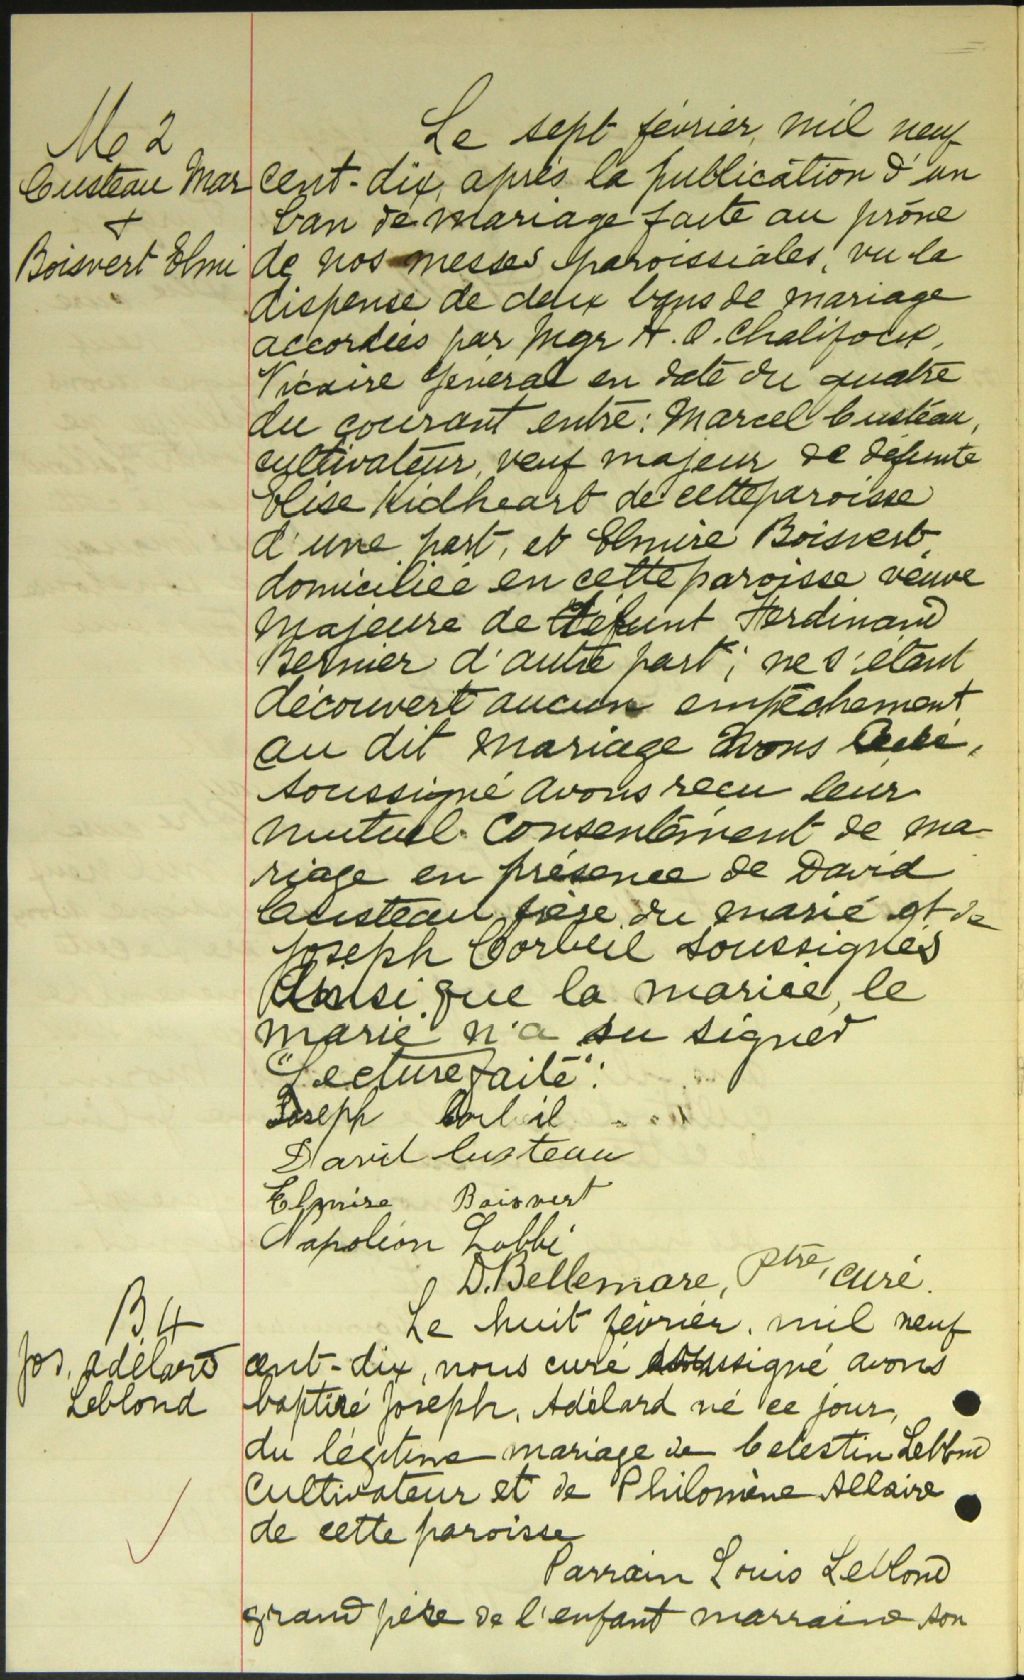 M 2
Custeau Mar
+
Boisvert Elmi
Le sept février, mil neuf
cent-dix, après la publication d'un
ban de mariage faite au prône
de nos messes paroissiales, vu la
dispense de deux bans de mariage
accordées par Mgr H. O. Chalifoux,
Vicaire Général en date du quatre
du courant entre: Marcel Custeau,
cultivateur, veuf majeur de défunte
Elise Kidheart de cette paroisse
d'une part, et Elmire Boisvert,
domiciliée en cette paroisse veuve
majeure de défunt Ferdinand
Bernier d'autre part; ne s'étant
découvert aucun empêchement
au dit mariage nous curé,
soussigné avons reçu leur
mutuel consentement de ma-
riage en présence de David
Custeau frère du marié et de
Joseph Corbeil soussignés
Ainsi que la mariée, le
marié n'a su signer
"Lecture faite":
Joseph Corbeil
David Custeau
Elmire Boisvert
Napoléon Labbé
D. Bellemare, ptre, curé.
B 4
Jos. Adélard
Leblond
Le huit février, mil neuf
cent-dix, nous curé soussigné avons
baptisé Joseph, Adélard né ce jour,
du légitime mariage de Celestin Leblond
Cultivateur et de Philomène Allaire
de cette paroisse
Parrain Louis Leblond
grand père de l'enfant marraine son